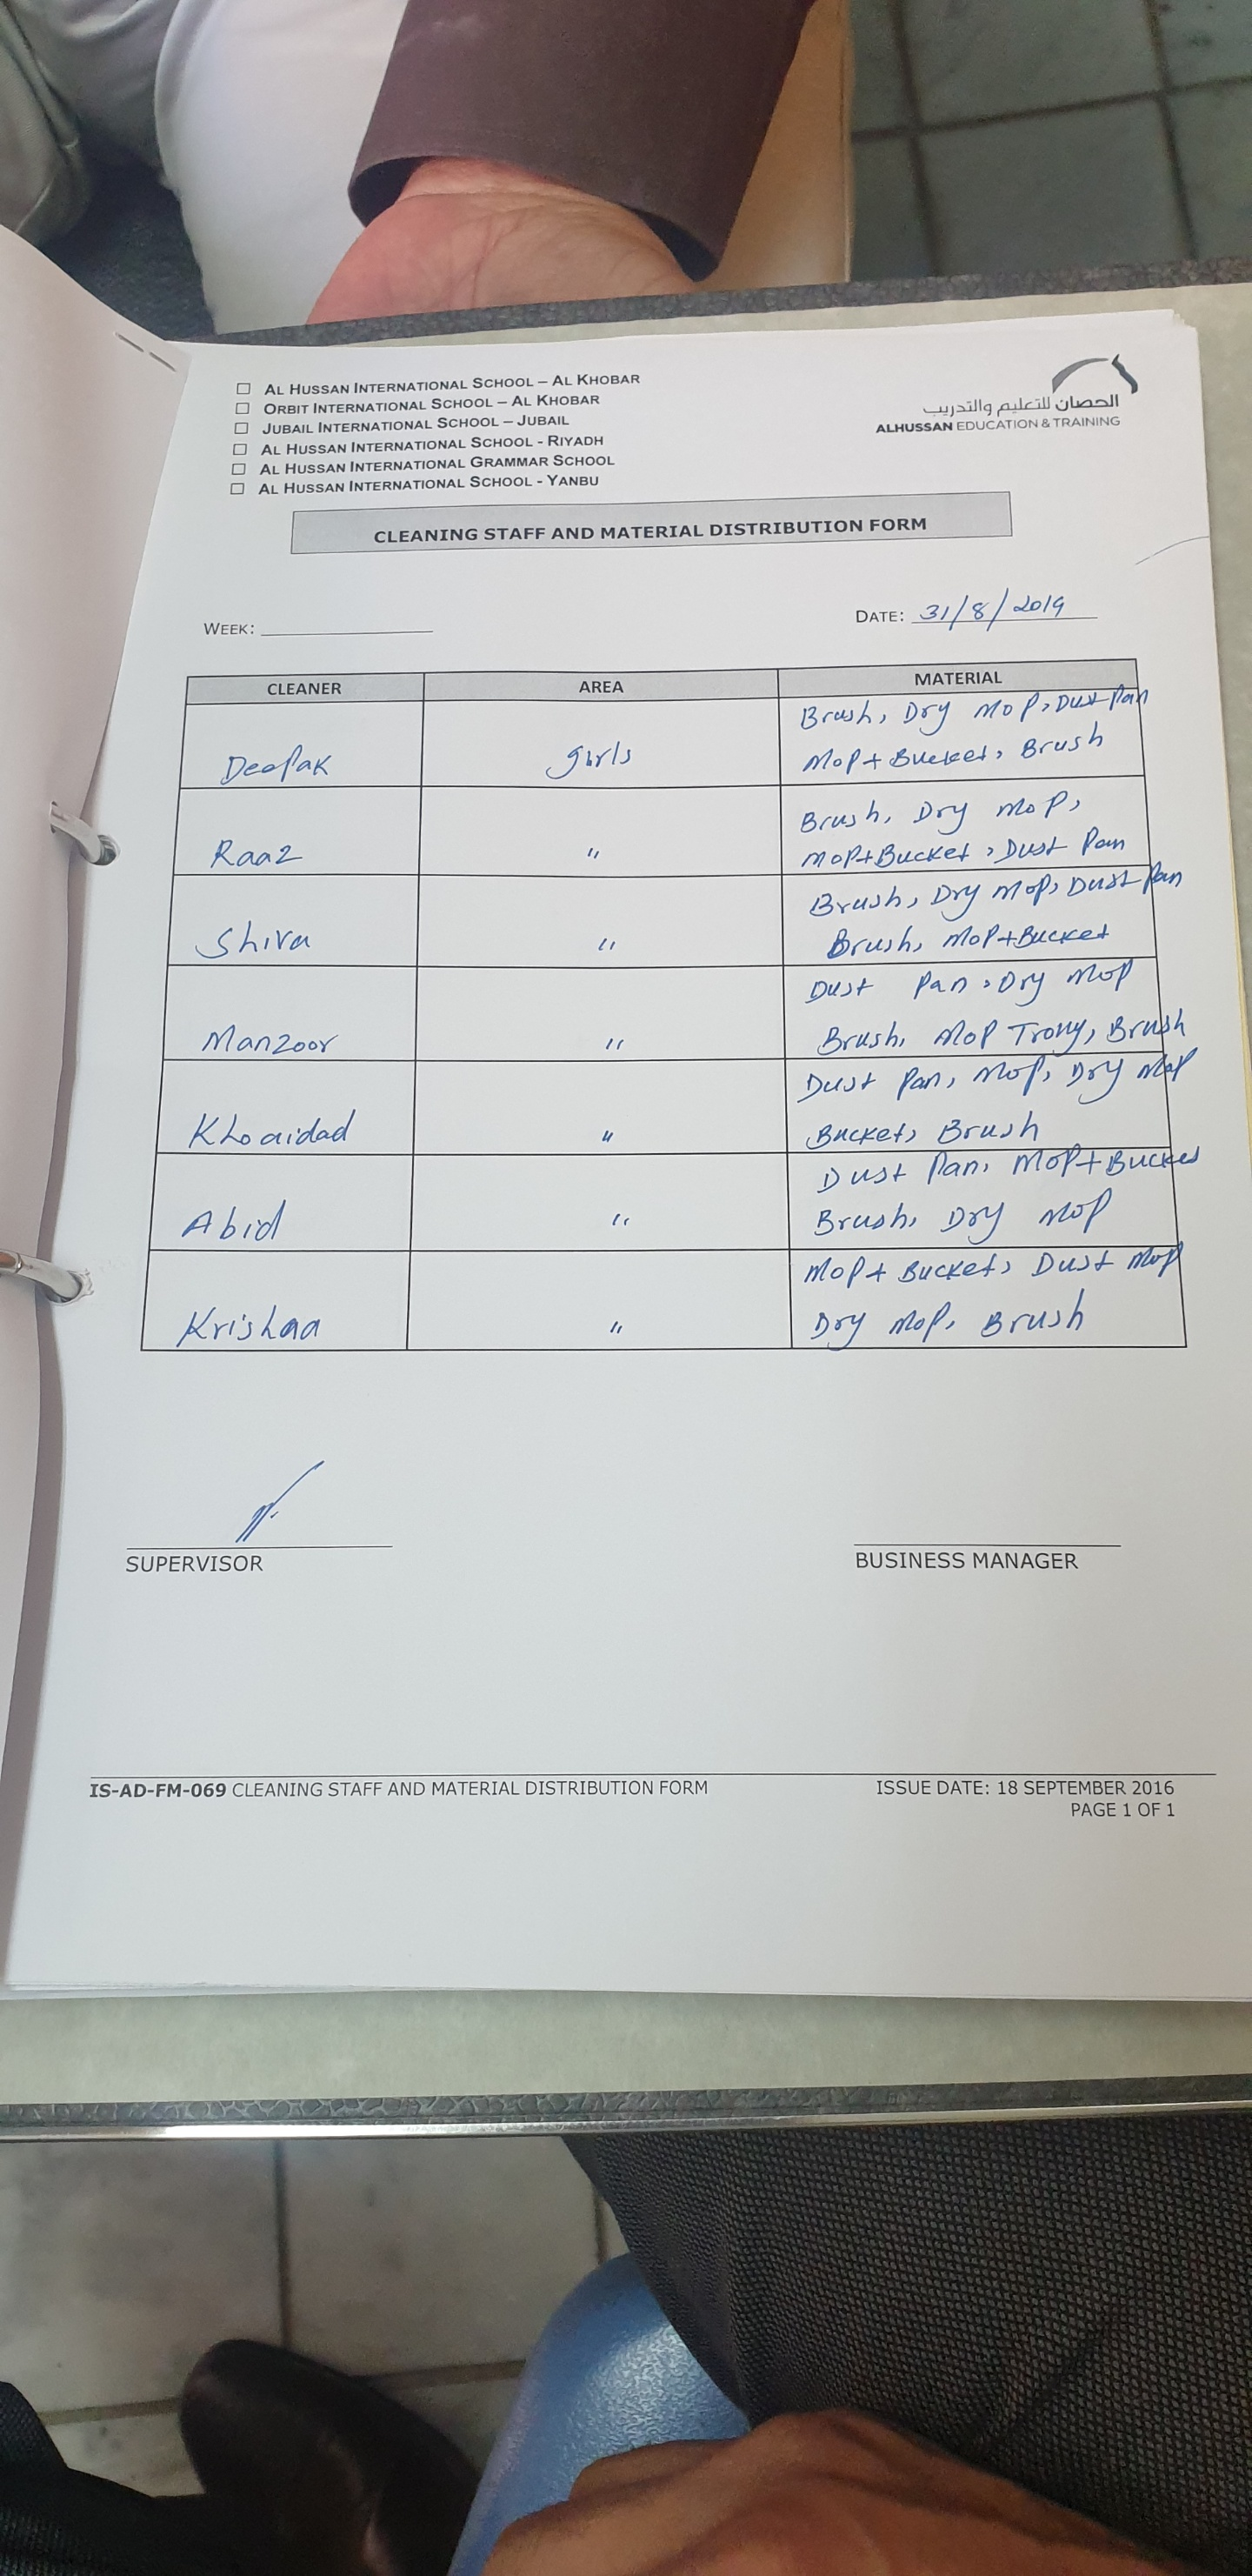 ☐ AL HUSSAN INTERNATIONAL SCHOOL – AL KHOBAR
☐ ORBIT INTERNATIONAL SCHOOL – AL KHOBAR
☐ JUBAIL INTERNATIONAL SCHOOL – JUBAIL
☐ AL HUSSAN INTERNATIONAL SCHOOL - RIYADH
☐ AL HUSSAN INTERNATIONAL GRAMMAR SCHOOL
☐ AL HUSSAN INTERNATIONAL SCHOOL - YANBU
الحصان للتعليم والتدريب
ALHUSSAN EDUCATION & TRAINING
CLEANING STAFF AND MATERIAL DISTRIBUTION FORM
WEEK:
DATE: 31/8/2019
CLEANER AREA MATERIAL
Deepak girls Brush, Dry Mop, Dust Pan
Mop+Bucket, Brush
Raaz " Brush, Dry Mop,
Mop+Bucket, Dust Pan
Shiva " Brush, Dry Mop, Dust Pan
Brush, Mop+Bucket
Manzoor " Dust Pan, Dry Mop
Brush, Mop Trolly, Brush
Khoaidad " Dust Pan, Mop, Dry Mop
Bucket, Brush
Abid " Dust Pan, Mop+Bucket
Brush, Dry Mop
Krishaa " Mop+Bucket, Dust Mop
Dry Mop, Brush
SUPERVISOR
BUSINESS MANAGER
IS-AD-FM-069 CLEANING STAFF AND MATERIAL DISTRIBUTION FORM
ISSUE DATE: 18 SEPTEMBER 2016
PAGE 1 OF 1